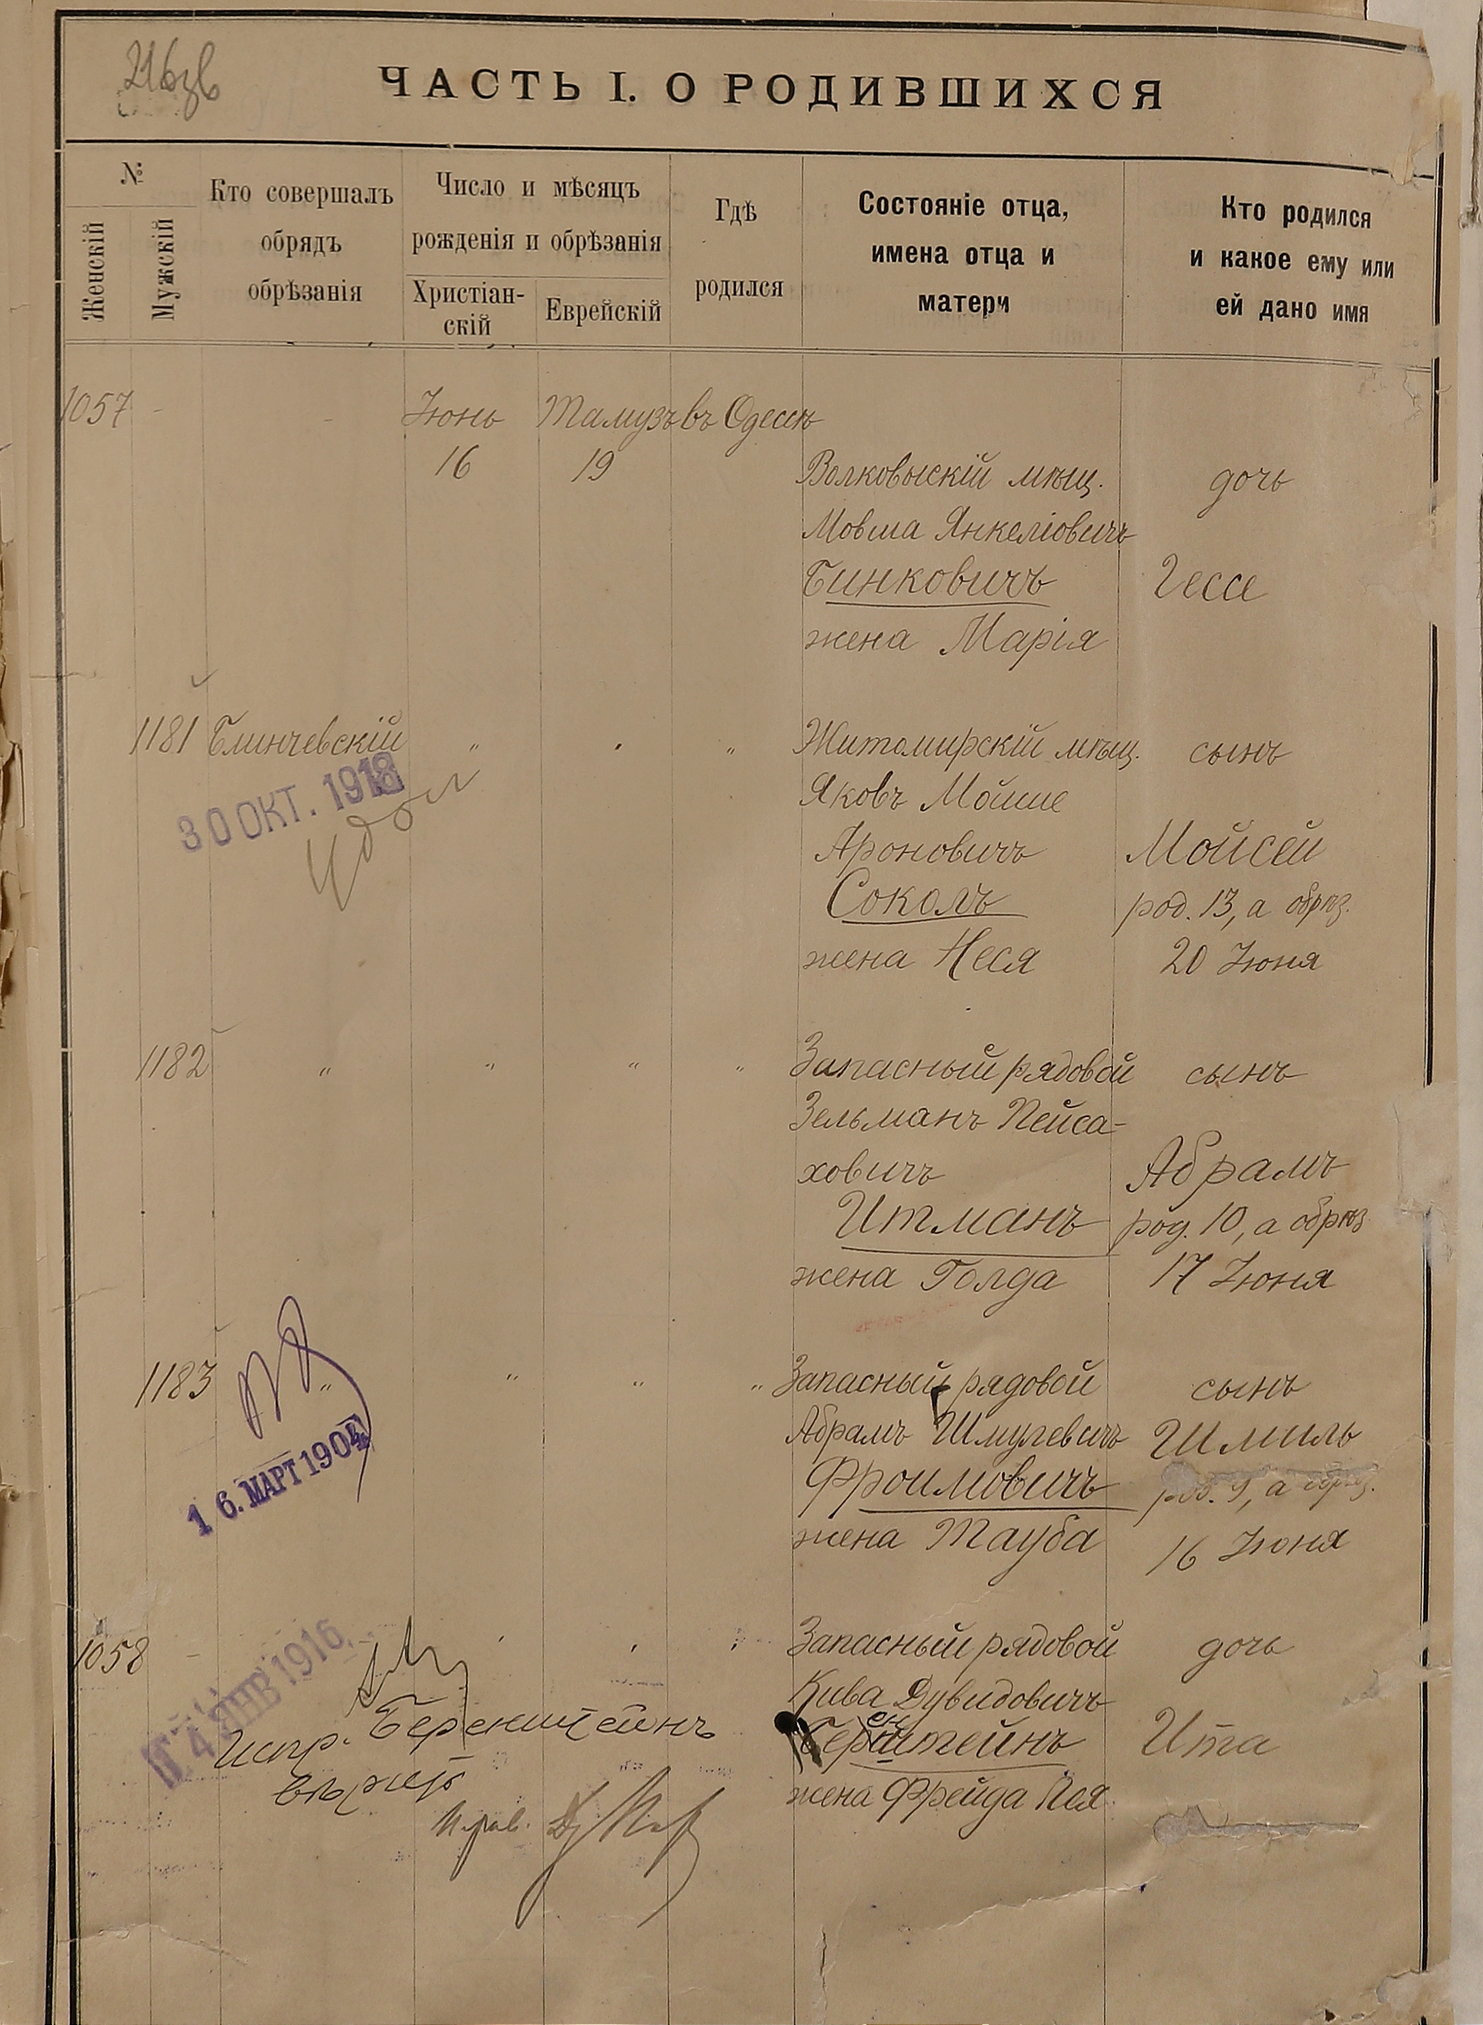 ЧАСТЬ I. О РОДИВШИХСЯ
№
Женскій
Мужскій
Кто совершалъ
обрядъ
обрѣзанія
Число и мѣсяцъ
рожденія и обрѣзанія
Христіан-
скій
Еврейскій
Гдѣ
родился
Состояніе отца,
имена отца и
матери
Кто родился
и какое ему или
ей дано имя
1057 - - Іюнь Тамузъ въ Одессѣ
16 19
Волковыскій мѣщ. дочь
Мовша Янкеліовичъ
Бинковичъ Гессе
жена Марія
1181 Блинчевскій " " " Житомирскій мѣщ. сынъ
30 ОКТ. 1918
Яковъ Мойше
Ароновичъ Мойсей
Соколъ род. 13, а обрѣз.
жена Неся 20 Іюня
1182 " " " " Запасный рядовой сынъ
Зельманъ Пейса-
ховичъ Абрамъ
Итманъ род. 10, а обрѣз
жена Голда 17 Іюня
1183 " " " " Запасный рядовой сынъ
Абрамъ Шмулевичъ Шмиль
16. МАРТ 1904
Фроимовичъ род. 9, а обрѣз.
жена Тауба 16 Іюня
1058 - " " " Запасный рядовой дочь
4 ЯНВ 1916
Кива Дувидовичъ
Испр. Беренштейнъ
ен
Берштейнъ Ита
жена Фрейда Пея